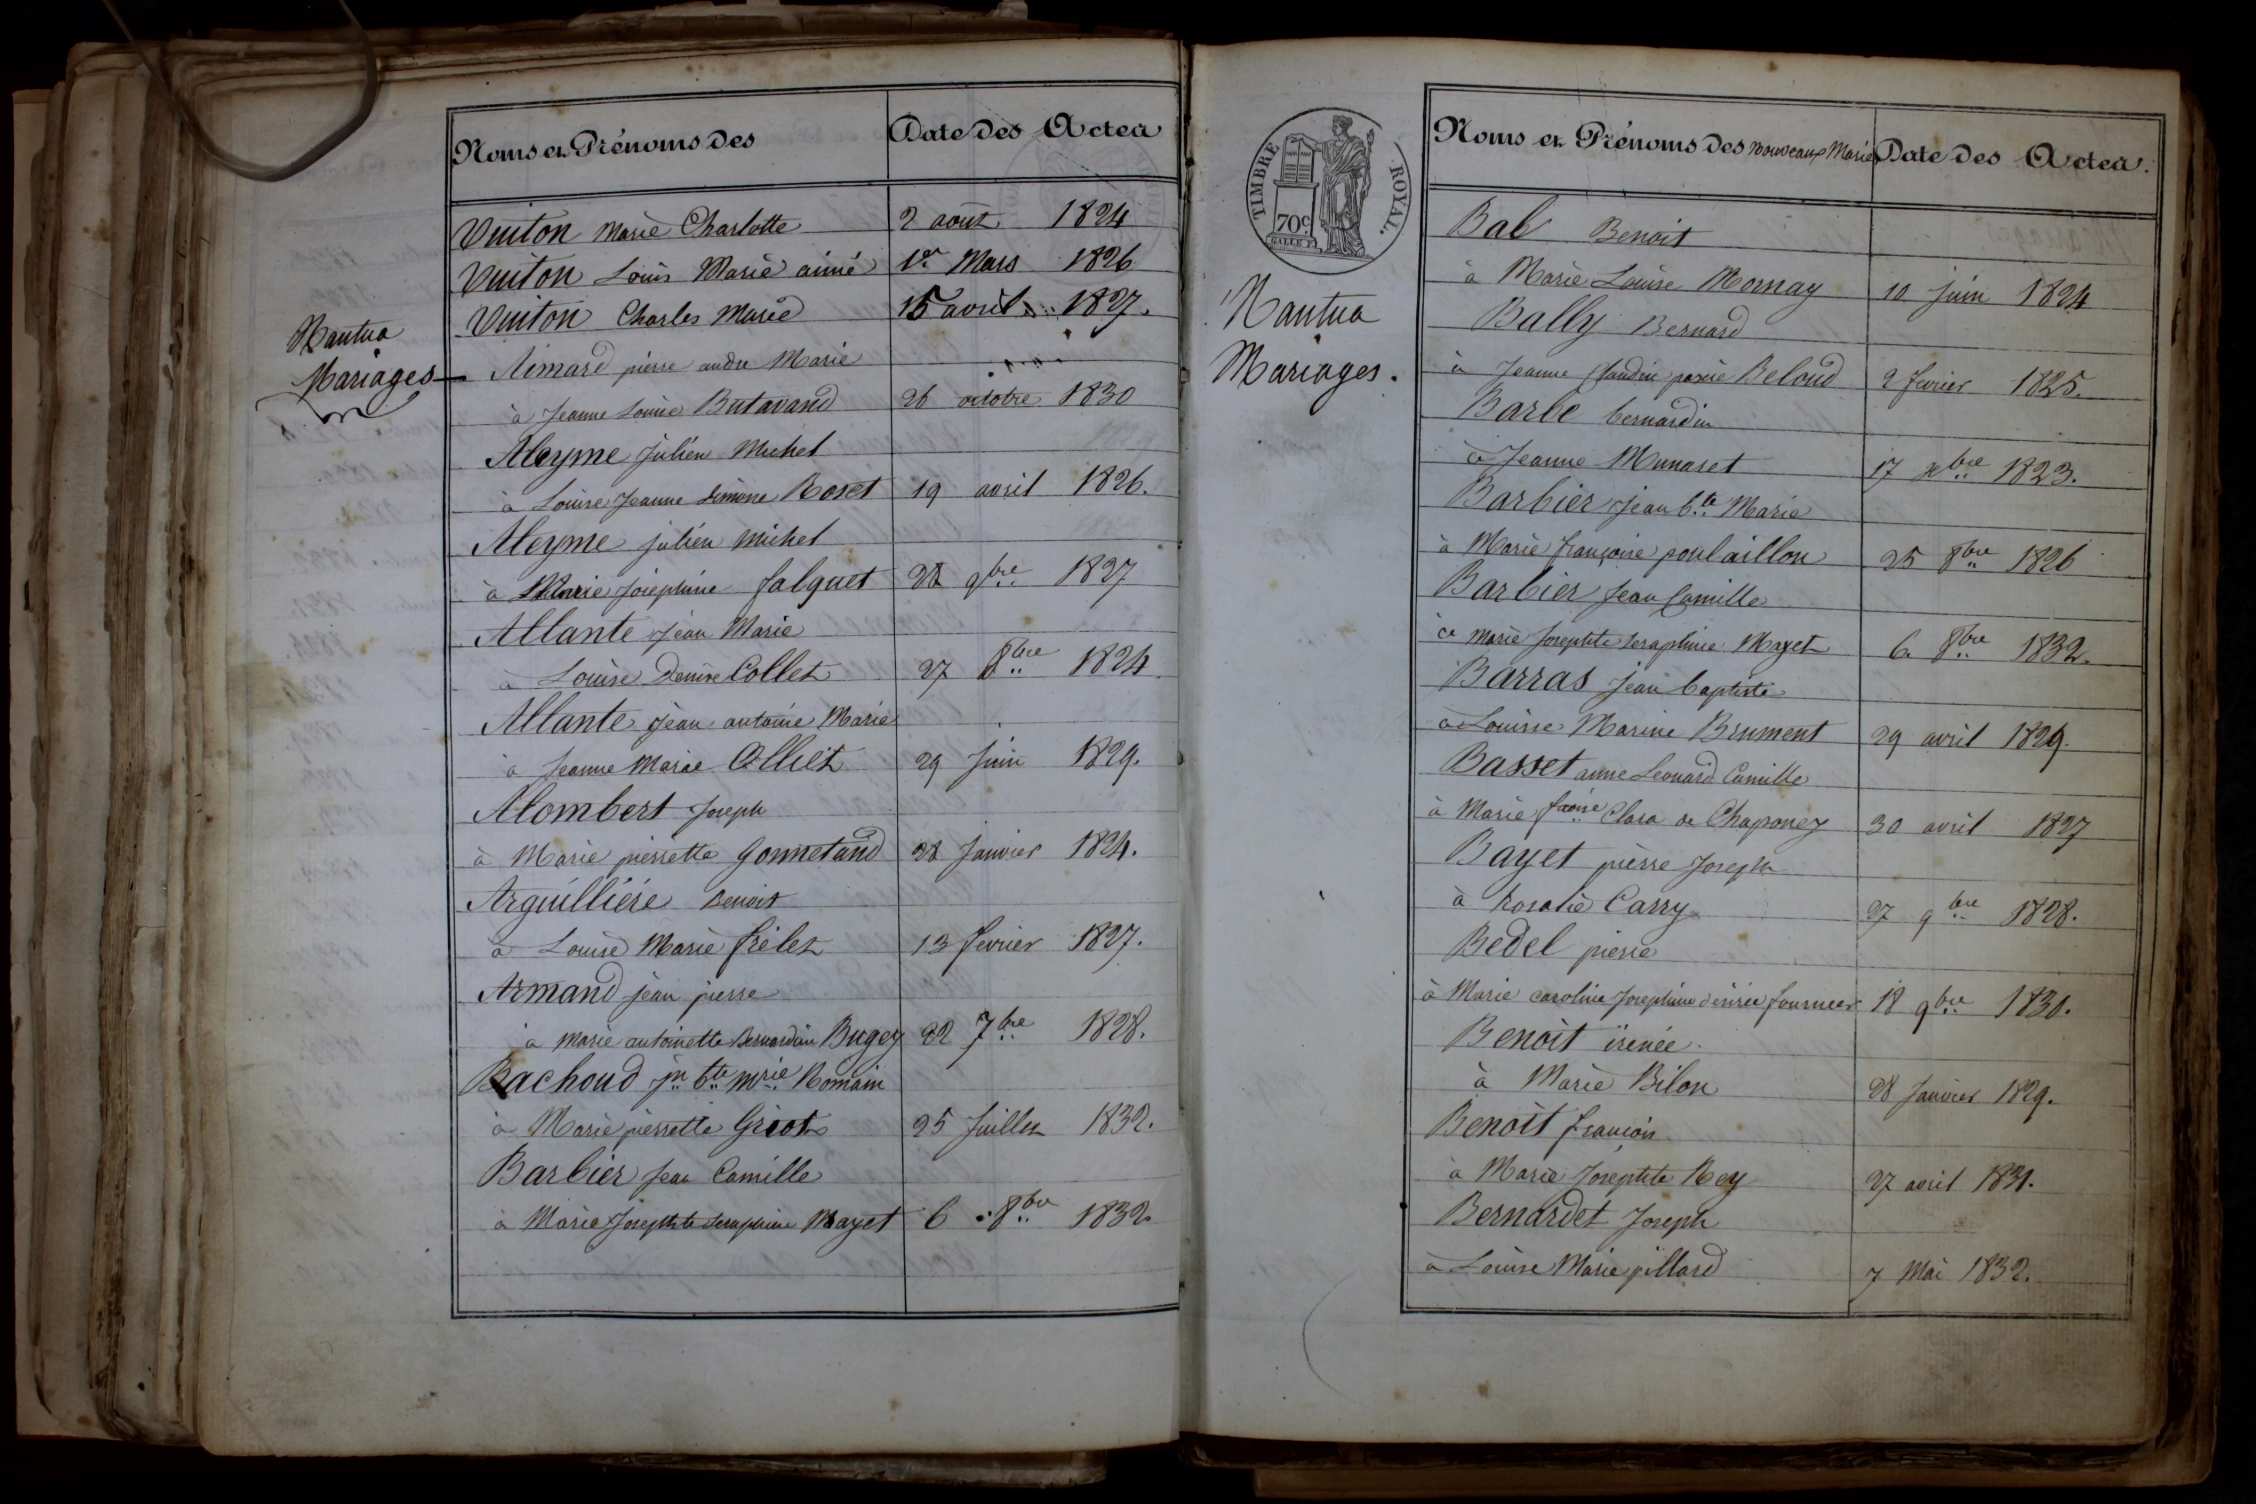 Noms et Prénoms des
Date des Actes
Vuiton Marie Charlotte 2 août 1824
Vuiton Louis Marie aimé 1er Mars 1826
Vuiton Charles Marie 15 avril 1827.
Nantua
Mariages
Aimard pierre andre Marie
à Jeanne Louise Butavand 26 octobre 1830
Aleyme Julien Michel
à Louise Jeanne Simone Roset 19 avril 1826.
Aleyme julien Michel
à Marie Josephine falquet 28 9bre 1827
Allante Jean Marie
à Louise Denise Collet 27 8bre 1824
Allante Jean antoine Marie
à Jeanne Marie Olliet 29 Juin 1829.
Alombert Joseph
à Marie pierrette Gonnetand 28 Janvier 1824.
Arguillière Benoit
à Louise Marie frélet 13 fevrier 1827.
Armand jean pierre
à Marie antoinette Bernardine Bugey 22 7bre 1828.
Bachoud jn bte mrie Romain
à Marie pierrette Griot 25 Juillet 1832.
Barbier Jean Camille
à Marie Josephte Seraphine Mayet 6 8bre 1832
TIMBRE ROYAL.
70c.
Nantua
Mariages.
Noms et Prénoms des nouveaux Mariés
Date des Actes.
Bal Benoit
à Marie Louise Mornay 10 Juin 1824
Bally Bernard
à Jeanne Claudine Beloud 2 fevrier 1825.
Barbe bernardin
à Jeanne Munaret 17 xbre 1823.
Barbier Jean bte Marie
à Marie françoise poulaillon 25 8bre 1826
Barbier Jean Camille
à Marie Josephte Seraphine Mayet 6 8bre 1832.
Barras Jean baptiste
à Louise Marine Brument 29 avril 1829.
Basset anne Leonard Camille
à Marie fcoise Clara de Chaponey 30 avril 1827
Bayet pierre Joseph
à Rosalie Carry 27 9bre 1828.
Bedel pierre
à Marie caroline Josephine désirée fournier 18 9bre 1830.
Benoit irénée
à Marie Bilon 28 Janvier 1829.
Benoit françois
à Marie Josephte Rey 27 avril 1831.
Bernardet Joseph
à Louise Marie pillard 7 Mai 1832.